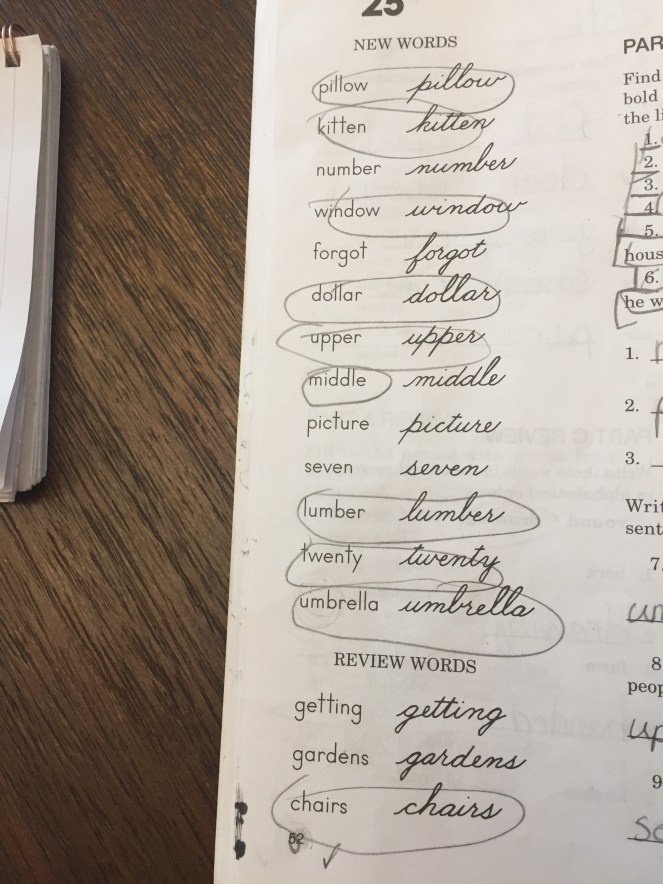 25
NEW WORDS
pillow pillow
kitten kitten
number number
window window
forgot forgot
dollar dollar
upper upper
middle middle
picture picture
seven seven
lumber lumber
twenty twenty
umbrella umbrella
REVIEW WORDS
getting getting
gardens gardens
chairs chairs
52
PAR
Find
bold
the li
1.
2.
3.
4
5.
hous
6.
he w
1.
2.
3.
Writ
sent
7.
um
8
peop
up
9